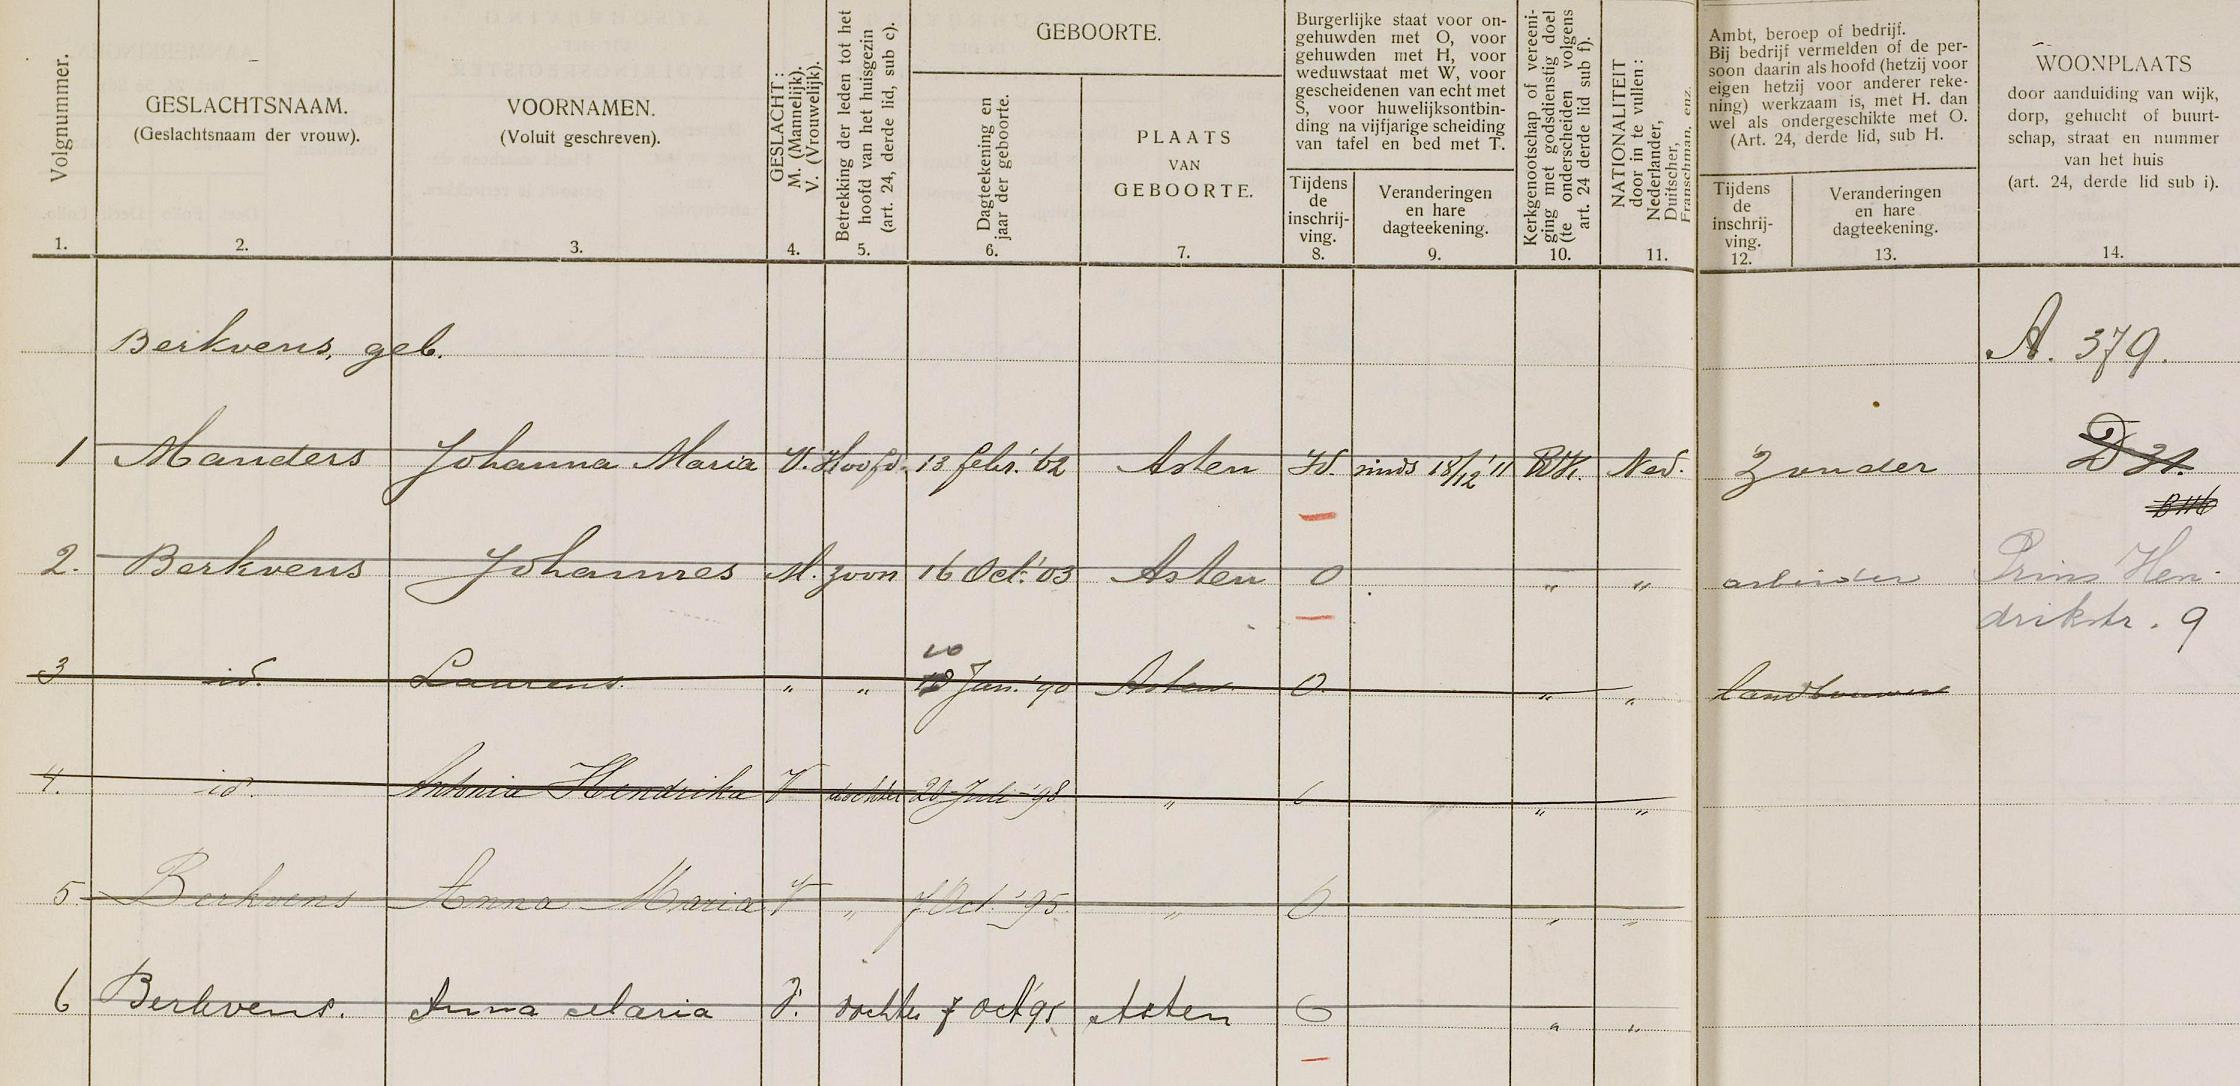 Volgnummer.
1.
GESLACHTSNAAM.
(Geslachtsnaam der vrouw).
2.
VOORNAMEN.
(Voluit geschreven).
3.
GESLACHT:
M. (Mannelijk).
V. (Vrouwelijk).
4.
Betrekking der leden tot het
hoofd van het huisgezin
(art. 24, derde lid, sub c).
5.
GEBOORTE.
Dagteekening en
jaar der geboorte.
6.
PLAATS
VAN
GEBOORTE.
7.
Burgerlijke staat voor on-
gehuwden met O, voor
gehuwden met H, voor
weduwstaat met W, voor
gescheidenen van echt met
S, voor huwelijksontbin-
ding na vijfjarige scheiding
van tafel en bed met T.
Tijdens
de
inschrij-
ving.
8.
Veranderingen
en hare
dagteekening.
9.
Kerkgenootschap of vereeni-
ging met godsdienstig doel
(te onderscheiden volgens
art. 24 derde lid sub f).
10.
NATIONALITEIT
door in te vullen:
Nederlander,
Duitscher,
Franschman, enz.
11.
Ambt, beroep of bedrijf.
Bij bedrijf vermelden of de per-
soon daarin als hoofd (hetzij voor
eigen hetzij voor anderer reke-
ning) werkzaam is, met H. dan
wel als ondergeschikte met O.
(Art. 24, derde lid, sub H.
Tijdens
de
inschrij-
ving.
12.
Veranderingen
en hare
dagteekening.
13.
WOONPLAATS
door aanduiding van wijk,
dorp, gehucht of buurt-
schap, straat en nummer
van het huis
(art. 24, derde lid sub i).
14.
Berkvens, geb. A. 379.
1 Manders Johanna Maria V. Hoofd. 13 febr. '62 Asten W. sinds 18/12 '11 RK. Ned. Zonder D 31.
B 116
2. Berkvens Johannes M. zoon 16 Oct. '03 Asten O " " arbeider Prins Hen-
drikstr. 9
10
3 id. Laurens " " Jan. '90 Asten O. " " landbouwer
4. id. Antonia Hendrika V dochter 20 Juli '98 " O " "
5. Berkvens Anna Maria V " 7 Oct. '95 " O " "
6 Berkvens. Anna Maria V. dochter 7 Oct '95 Asten O " "